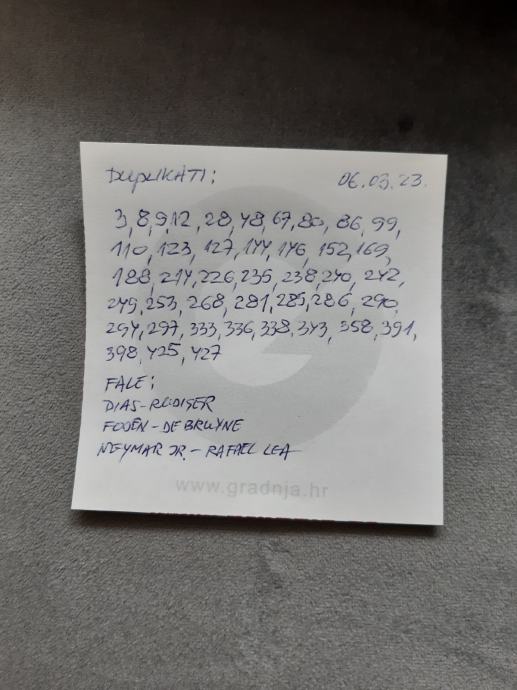 DUPLIKATI: 06.03.23.
3, 8, 9, 12, 28, 48, 67, 80, 86, 99,
110, 123, 127, 144, 146, 152, 169,
188, 214, 226, 235, 238, 240, 242,
249, 253, 268, 281, 285, 286, 290,
294, 297, 333, 336, 338, 343, 358, 391,
398, 425, 427
FALE:
DIAS-RÜDIGER
FODEN-DE BRUYNE
NEYMAR JR.-RAFAEL LEA
www.gradnja.hr